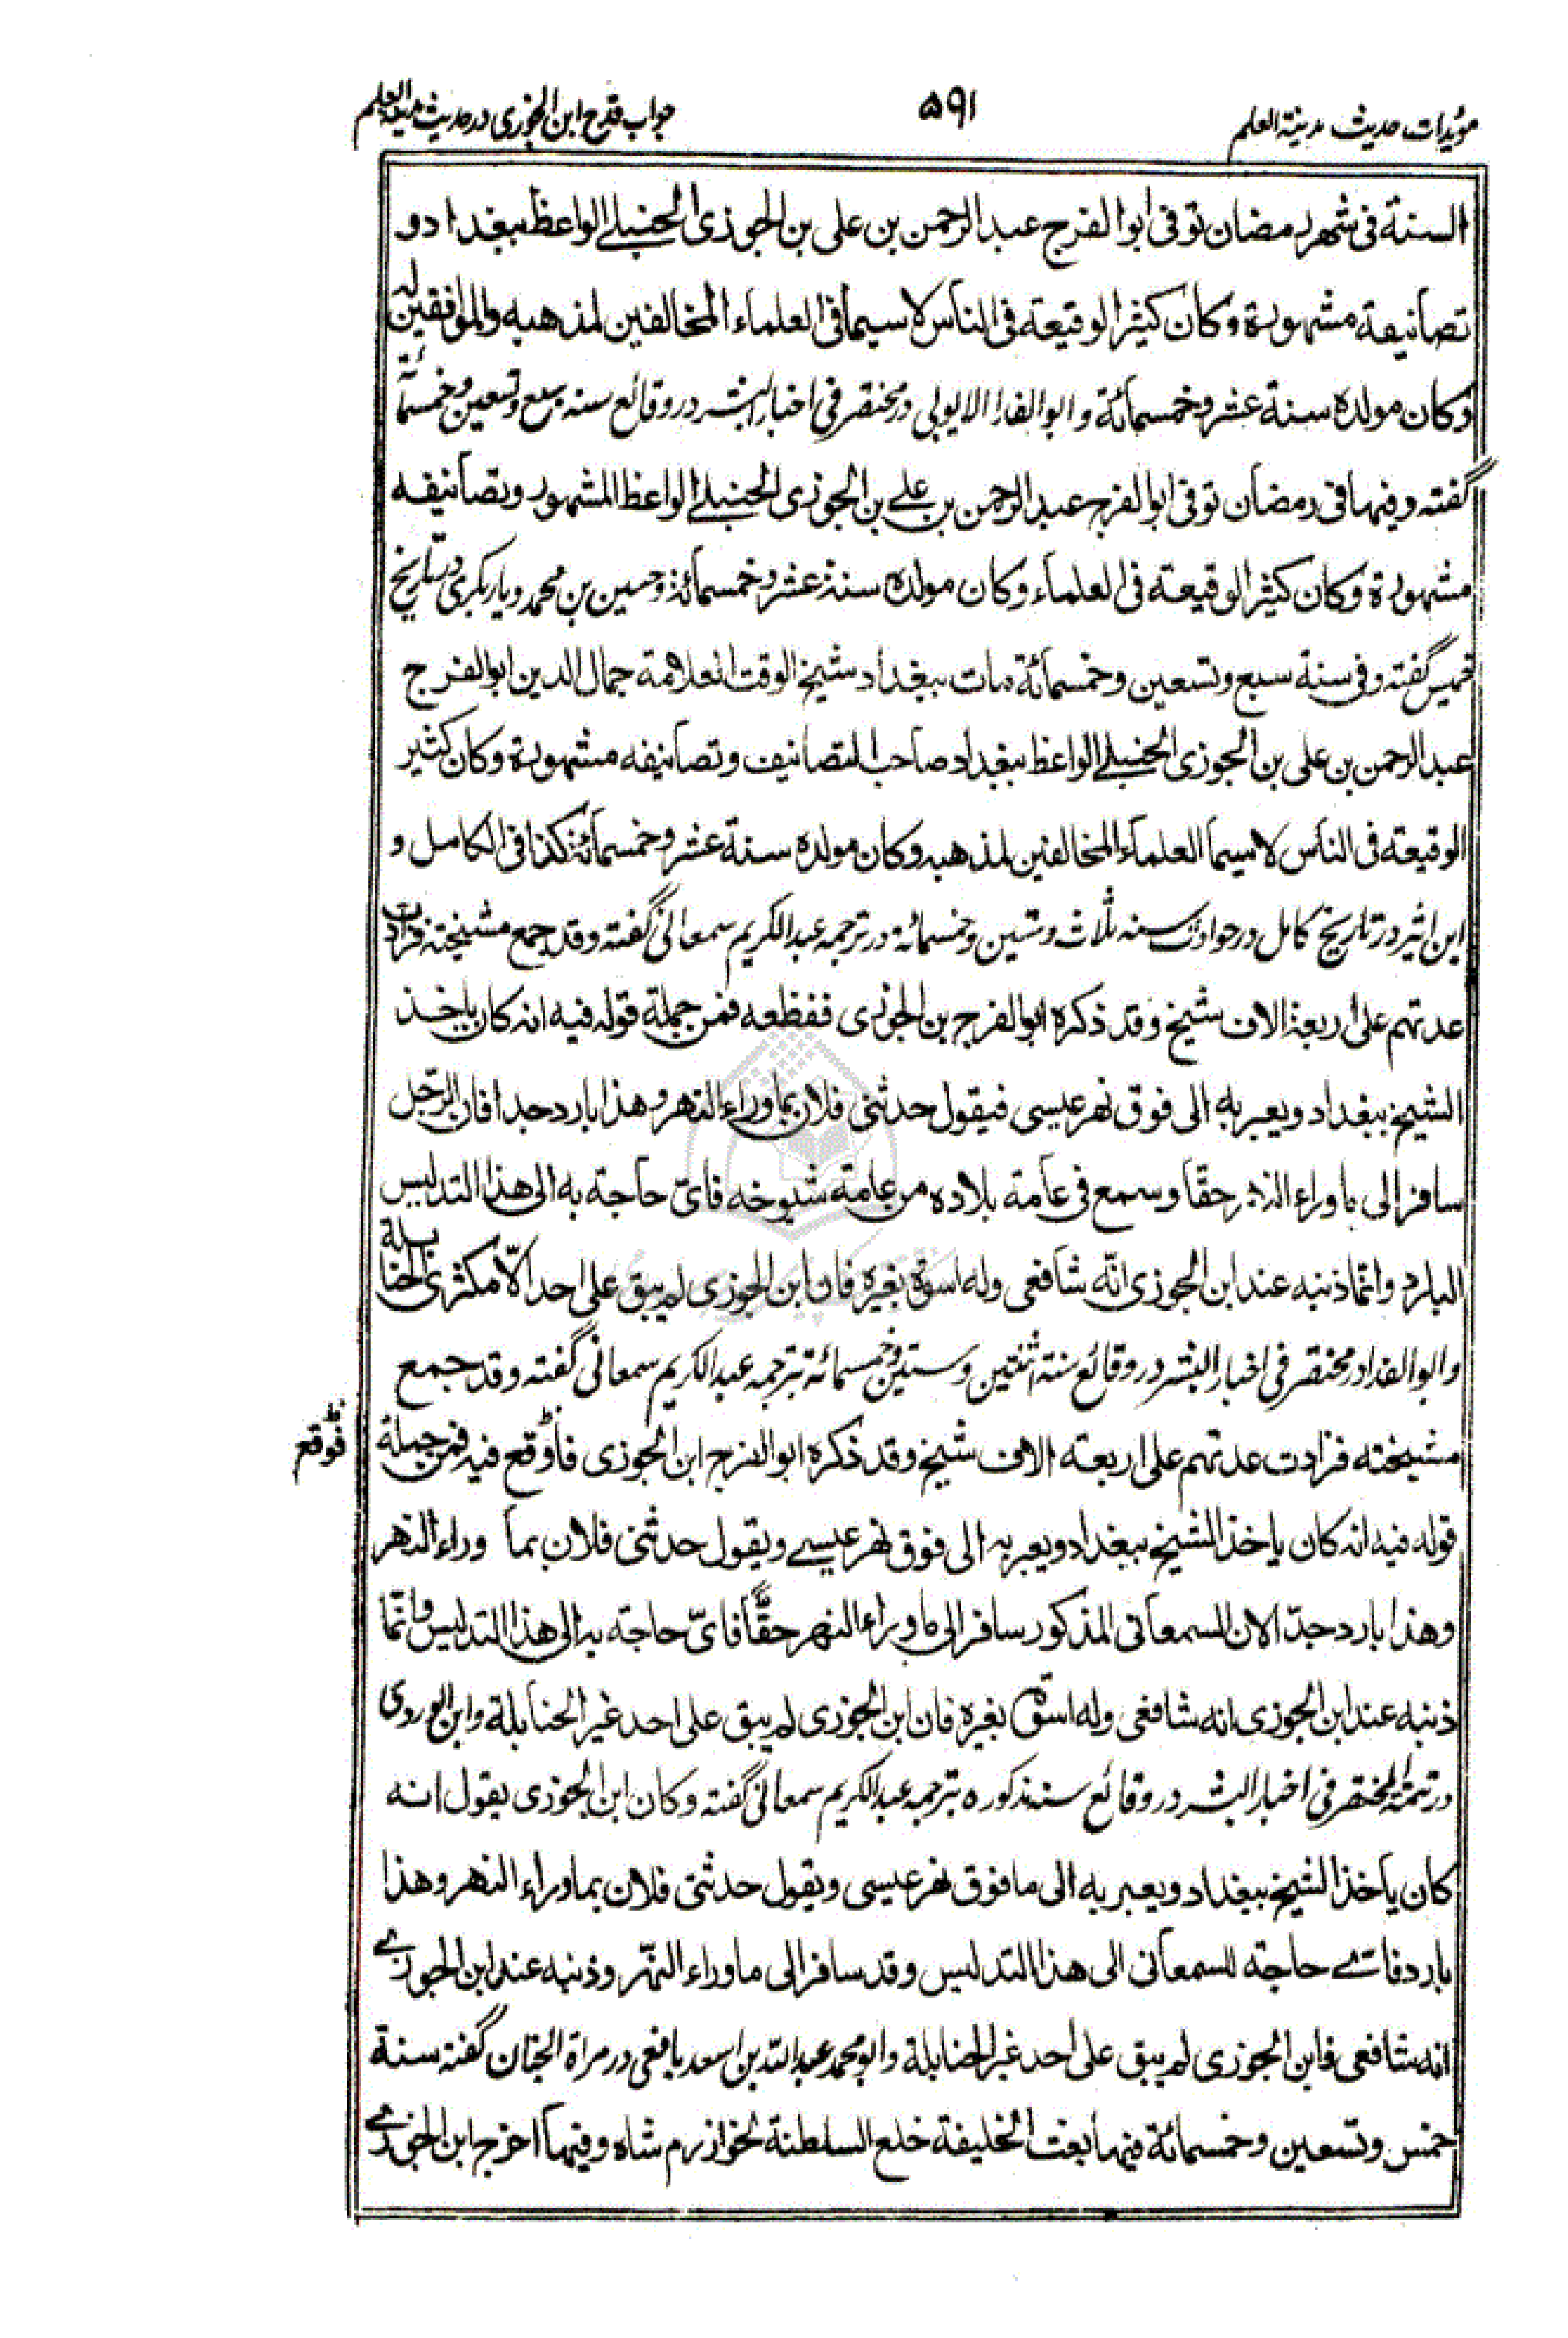 مؤیدات حدیث مدینة العلم
۵۹۱
جواب قدح ابن الجوزی در حدیث مدینة العلم
السنة فی شهر رمضان توفی ابو الفرج عبد الرحمن بن علی بن الجوزی الحنبلے الواعظ ببغداد و
تصانیفه مشهورة و کان کثیر الوقیعة فی الناس لا سیما فی العلماء المخالفین لمذهبه والموافقین له
و کان مولده سنة عشر و خمسمائة و ابو الفدا الایوبی در مختصر فی اخبار البشر در وقائع سنه سبع و تسعین و خمسمائة
گفته و فیها فی رمضان توفی ابو الفرج عبد الرحمن بن علے بن الجوزی الحنبلے الواعظ المشهور و تصانیفه
مشهورة و کان کثیر الوقیعة فی العلماء و کان مولده سنة عشر و خمسمائة و حسین بن محمد دیاربکری در تاریخ
خمیس گفته و فی سنة سبع و تسعین و خمسمائة مات ببغداد شیخ الوقت العلامة جمال الدین ابو الفرج
عبد الرحمن بن علی بن الجوزی الحنبلے الواعظ ببغداد صاحب التصانیف و تصانیفه مشهورة و کان کثیر
الوقیعة فی الناس لا سیما العلماء المخالفین لمذهبه و کان مولده سنة عشر و خمسمائة کذا فی الکامل و
ابن اثیر در تاریخ کامل در حوادث سنه ثلاث و ستین و خمسمائة در ترجمه عبد الکریم سمعانی گفته و قد جمع مشیخته فزادت
عدتهم علی اربعة الاف شیخ و قد ذکره ابو الفرج بن الجوزی ففظعه فمن جملة قوله فیه انه کان یاخذ
الشیخ ببغداد و یعبر به الی فوق نهر عیسی فیقول حدثنی فلان بما وراء النهر و هذا بارد جدا فان الرجل
سافر الی ما وراء النهر حقا و سمع فی عامة بلاده من عامة شیوخه فای حاجة به الی هذا التدلیس
البارد و انما ذنبه عند ابن الجوزی انّه شافعی و له اسوة بغیره فان ابن الجوزی لم یبق علی احد الّا مکثری الحنابلة
و ابو الفدا در مختصر فی اخبار البشر در وقائع سنة اثنتین و ستین و خمسمائة بترجمه عبد الکریم سمعانی گفته و قد جمع
مشیخته فزادت عدتهم علی اربعة الاف شیخ و قد ذکره ابو الفرج ابن الجوزی فاوقع فیه فمن جملة
فوقع
قوله فیه انه کان یاخذ الشیخ ببغداد و یعبر به الی فوق نهر عیسے و یقول حدثنی فلان بما وراء النهر
و هذا بارد جدّا لان السمعانی المذکور سافر الی ما وراء النهر حقّا فایّ حاجة به الی هذا التدلیس و انّما
ذنبه عند ابن الجوزی انه شافعی و له اسوة بغیره فان ابن الجوزی لم یبق علی احد غیر الحنابلة و ابن الوردی
در تتمة المختصر فی اخبار البشر در وقائع سنه مذکوره بترجمه عبد الکریم سمعانی گفته و کان ابن الجوزی یقول انه
کان یاخذ الشیخ ببغداد و یعبر به الی ما فوق نهر عیسی و یقول حدثنی فلان بما وراء النهر و هذا
بارد فاے حاجة للسمعانی الی هذا التدلیس و قد سافر الی ما وراء النّهر و ذنبه عند ابن الجوزے
انه شافعی فابن الجوزی لم یبق علی احد غیر الحنابلة و ابو محمد عبد اللّه بن اسعد یافعی در مراة الجنان گفته سنة
خمس و تسعین و خمسمائة فیها بعث الخلیفة خلع السلطنة لخوارزم شاه و فیها اخرج ابن الجوزے